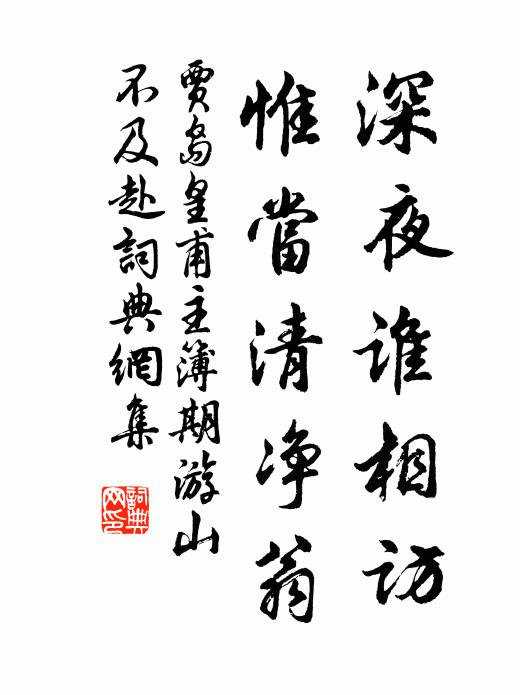 深夜谁相訪
惟當清净翁
賈島皇甫主簿期游山
不及赴詞典網集
詞典
网印